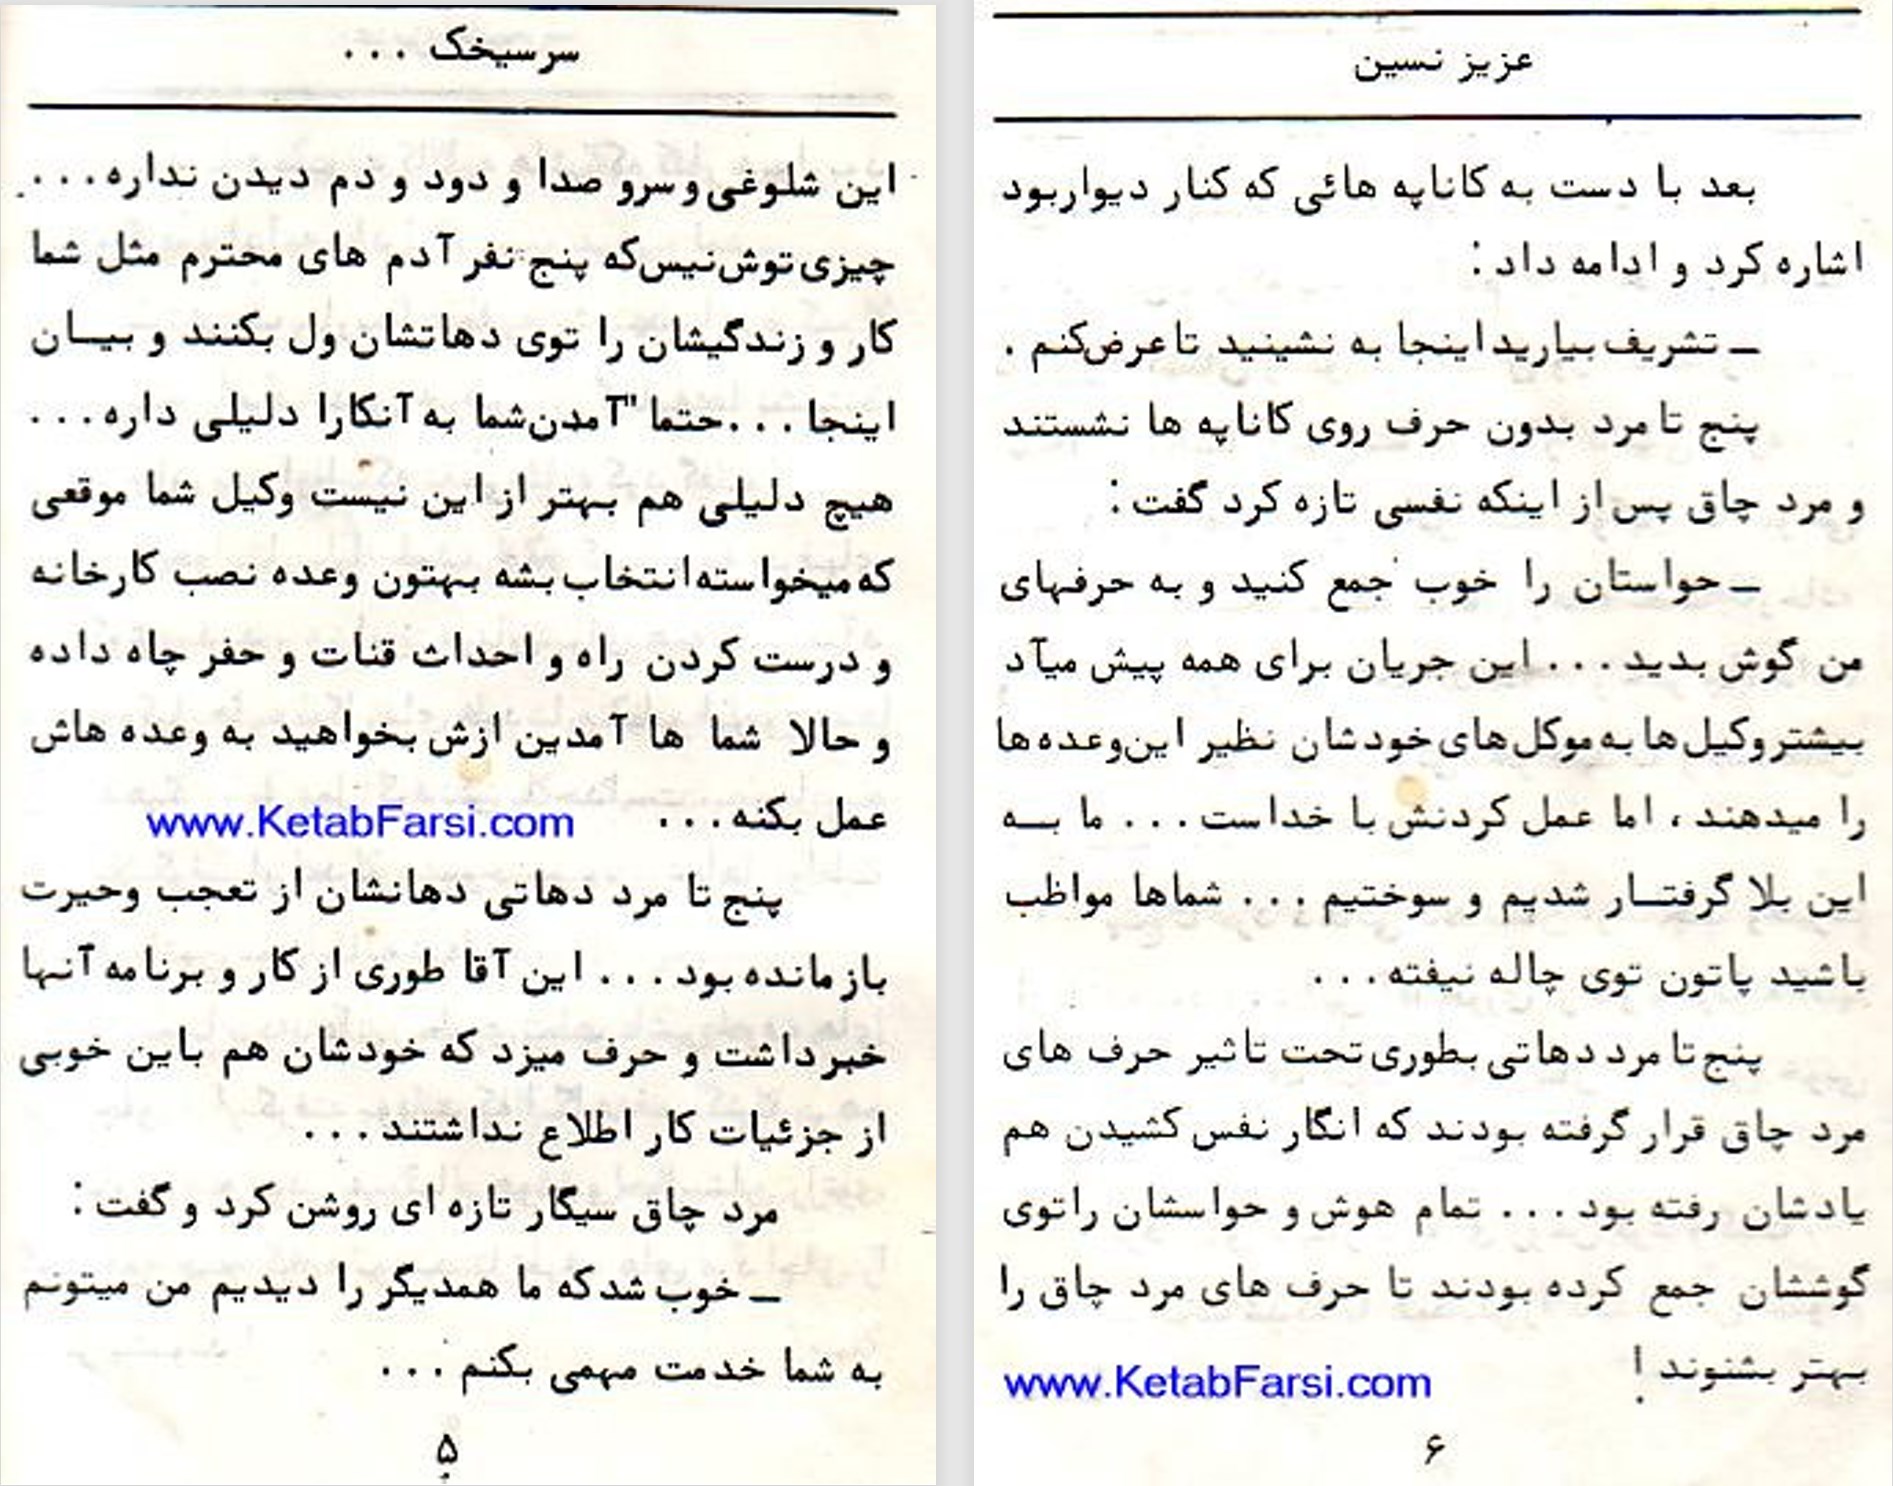 سرسیخک ...
این شلوغی و سرو صدا و دود و دم دیدن نداره...
چیزی توش‌نیس‌که پنج نفر آدم های محترم مثل شما
کار و زندگیشان را توی دهاتشان ول بکنند و بیـان
اینجا ...حتما "آمدن‌شما به آنکارا دلیلی داره...
هیچ دلیلی هم بهتر از این نیست وکیل شما موقعی
که میخواسته انتخاب بشه بهتون وعده نصب کارخانه
و درست کردن راه و احداث قنات و حفر چاه داده
و حالا شما ها آمدین ازش بخواهید به وعده هاش
عمل بکنه...
www.KetabFarsi.com
پنج تا مرد دهاتی دهانشان از تعجب وحیرت
بازمانده بود... این آقا طوری از کار و برنامه آنها
خبرداشت و حرف میزد که خودشان هم باین خوبی
از جزئیات کار اطلاع نداشتند...
مرد چاق سیگار تازه ای روشن کرد و گفت:
ـ خوب شدکه ما همدیگر را دیدیم من میتونم
به شما خدمت مهمی بکنم ...
۵
عزیز نسین
بعد با دست به کاناپه هائی که کنار دیواربود
اشاره کرد و ادامه داد:
ـ تشریف بیارید اینجا به نشینید تا عرض‌کنم .
پنج تا مرد بدون حرف روی کاناپه ها نشستند
و مرد چاق پس از اینکه نفسی تازه کرد گفت:
ـ حواستان را خوب جمع کنید و به حرفهای
من گوش بدید... این جریان برای همه پیش میآد
بیشتر وکیل‌ها به موکل‌های خودشان نظیر این‌وعده‌ها
را میدهند، اما عمل کردنش با خداست... ما بـه
این بلا گرفتـار شدیم و سوختیم ... شماها مواظب
باشید پاتون توی چاله نیفته...
پنج تا مرد دهاتی بطوری تحت تاثیر حرف های
مرد چاق قرار گرفته بودند که انگار نفس کشیدن هم
یادشان رفته بود... تمام هوش و حواسشان راتوی
گوششان جمع کرده بودند تا حرف های مرد چاق را
بهتر بشنوند !
www.KetabFarsi.com
۶